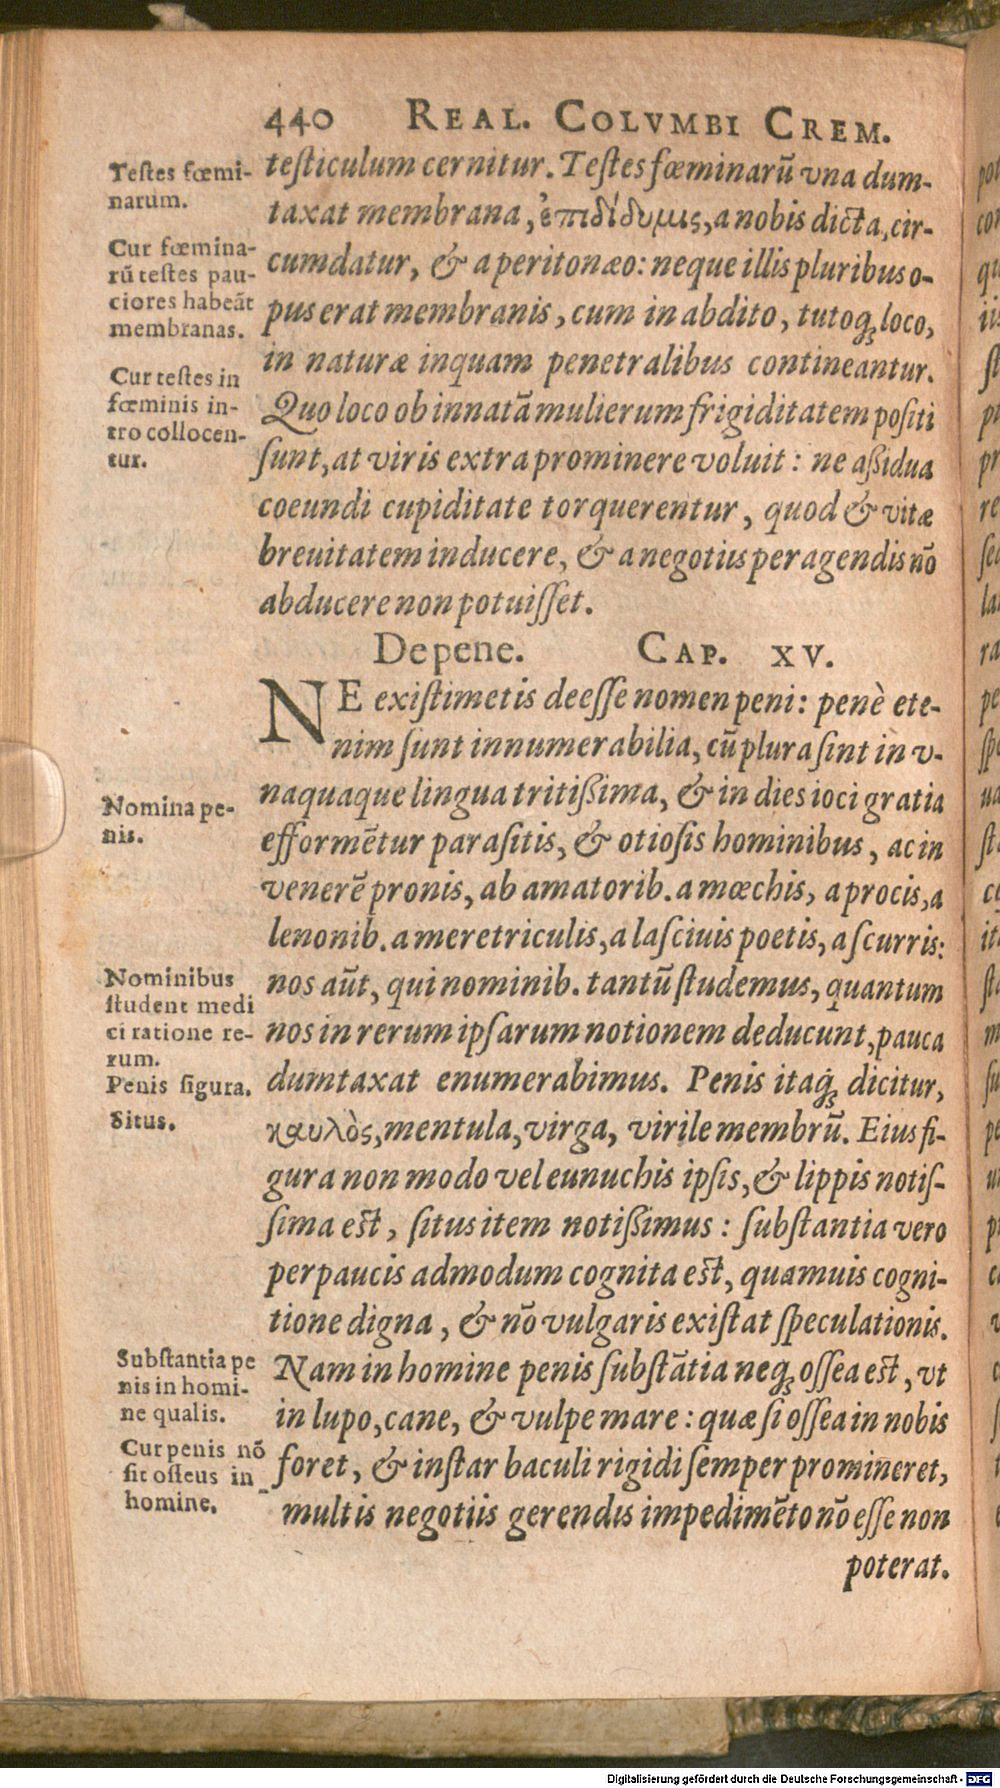 440 REAL. COLVMBI CREM.
testiculum cernitur. Testes fœminarũ vna dum-
taxat membrana, ἐπιδίδυμις, a nobis dicta, cir-
cumdatur, & a peritonæo: neque illis pluribus o-
pus erat membranis, cum in abdito, tutoq; loco,
in naturæ inquam penetralibus contineantur.
Quo loco ob innatã mulierum frigiditatem positi
sunt, at viris extra prominere voluit: ne aßidua
coeundi cupiditate torquerentur, quod & vitæ
breuitatem inducere, & a negotiis peragendis nõ
abducere non potuisset.
Testes fœmi-
narum.
Cur fœmina-
rũ testes pau-
ciores habeãt
membranas.
Cur testes in
fœminis in-
tro collocen-
tur.
De pene. CAP. XV.
NE existimetis deesse nomen peni: penè ete-
nim sunt innumerabilia, cũ plura sint in v-
naquaque lingua tritißima, & in dies ioci gratia
efformẽtur parasitis, & otiosis hominibus, ac in
venerẽ pronis, ab amatorib. a mœchis, a procis, a
lenonib. a meretriculis, a lasciuis poetis, a scurris:
nos aũt, qui nominib. tantũ studemus, quantum
nos in rerum ipsarum notionem deducunt, pauca
dumtaxat enumerabimus. Penis itaq; dicitur,
καυλὸς, mentula, virga, virile membrũ. Eius fi-
gura non modo vel eunuchis ipsis, & lippis notis-
sima est, situs item notißimus: substantia vero
perpaucis admodum cognita est, quamuis cogni-
tione digna, & nõ vulgaris existat speculationis.
Nam in homine penis substãtia neq; ossea est, vt
in lupo, cane, & vulpe mare: quæ si ossea in nobis
foret, & instar baculi rigidi semper promineret,
multis negotiis gerendis impedimẽto nõ esse non
poterat.
Nomina pe-
nis.
Nominibus
student medi
ci ratione re-
rum.
Penis figura.
Situs.
Substantia pe
nis in homi-
ne qualis.
Cur penis nõ
sit osseus in
homine.
Digitalisierung gefördert durch die Deutsche Forschungsgemeinschaft - DFG